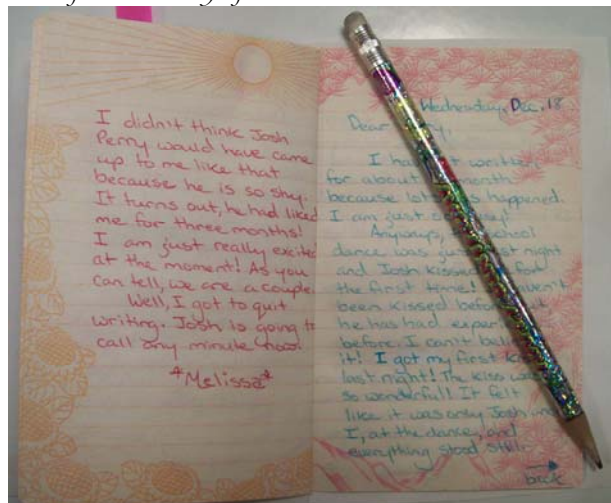 I didn't think Josh
Perry would have came
up to me like that
because he is so shy.
It turns out, he had liked
me for three months!
I am just really excited
at the moment! As you
can tell, we are a couple.
Well, I got to quit
writing. Josh is going to
call any minute now.
*Melissa*
Wednesday, Dec. 18
Dear
I written
for about month
because happened.
I am just
Anyways, school
dance was just night
and Josh kissed for
the first time!
been kissed before
he has had
before. I can't
it! I got my first
last night! The kiss was
so wonderful! It felt
like it was only Josh and
I, at the dance, and
everything stood still.
back